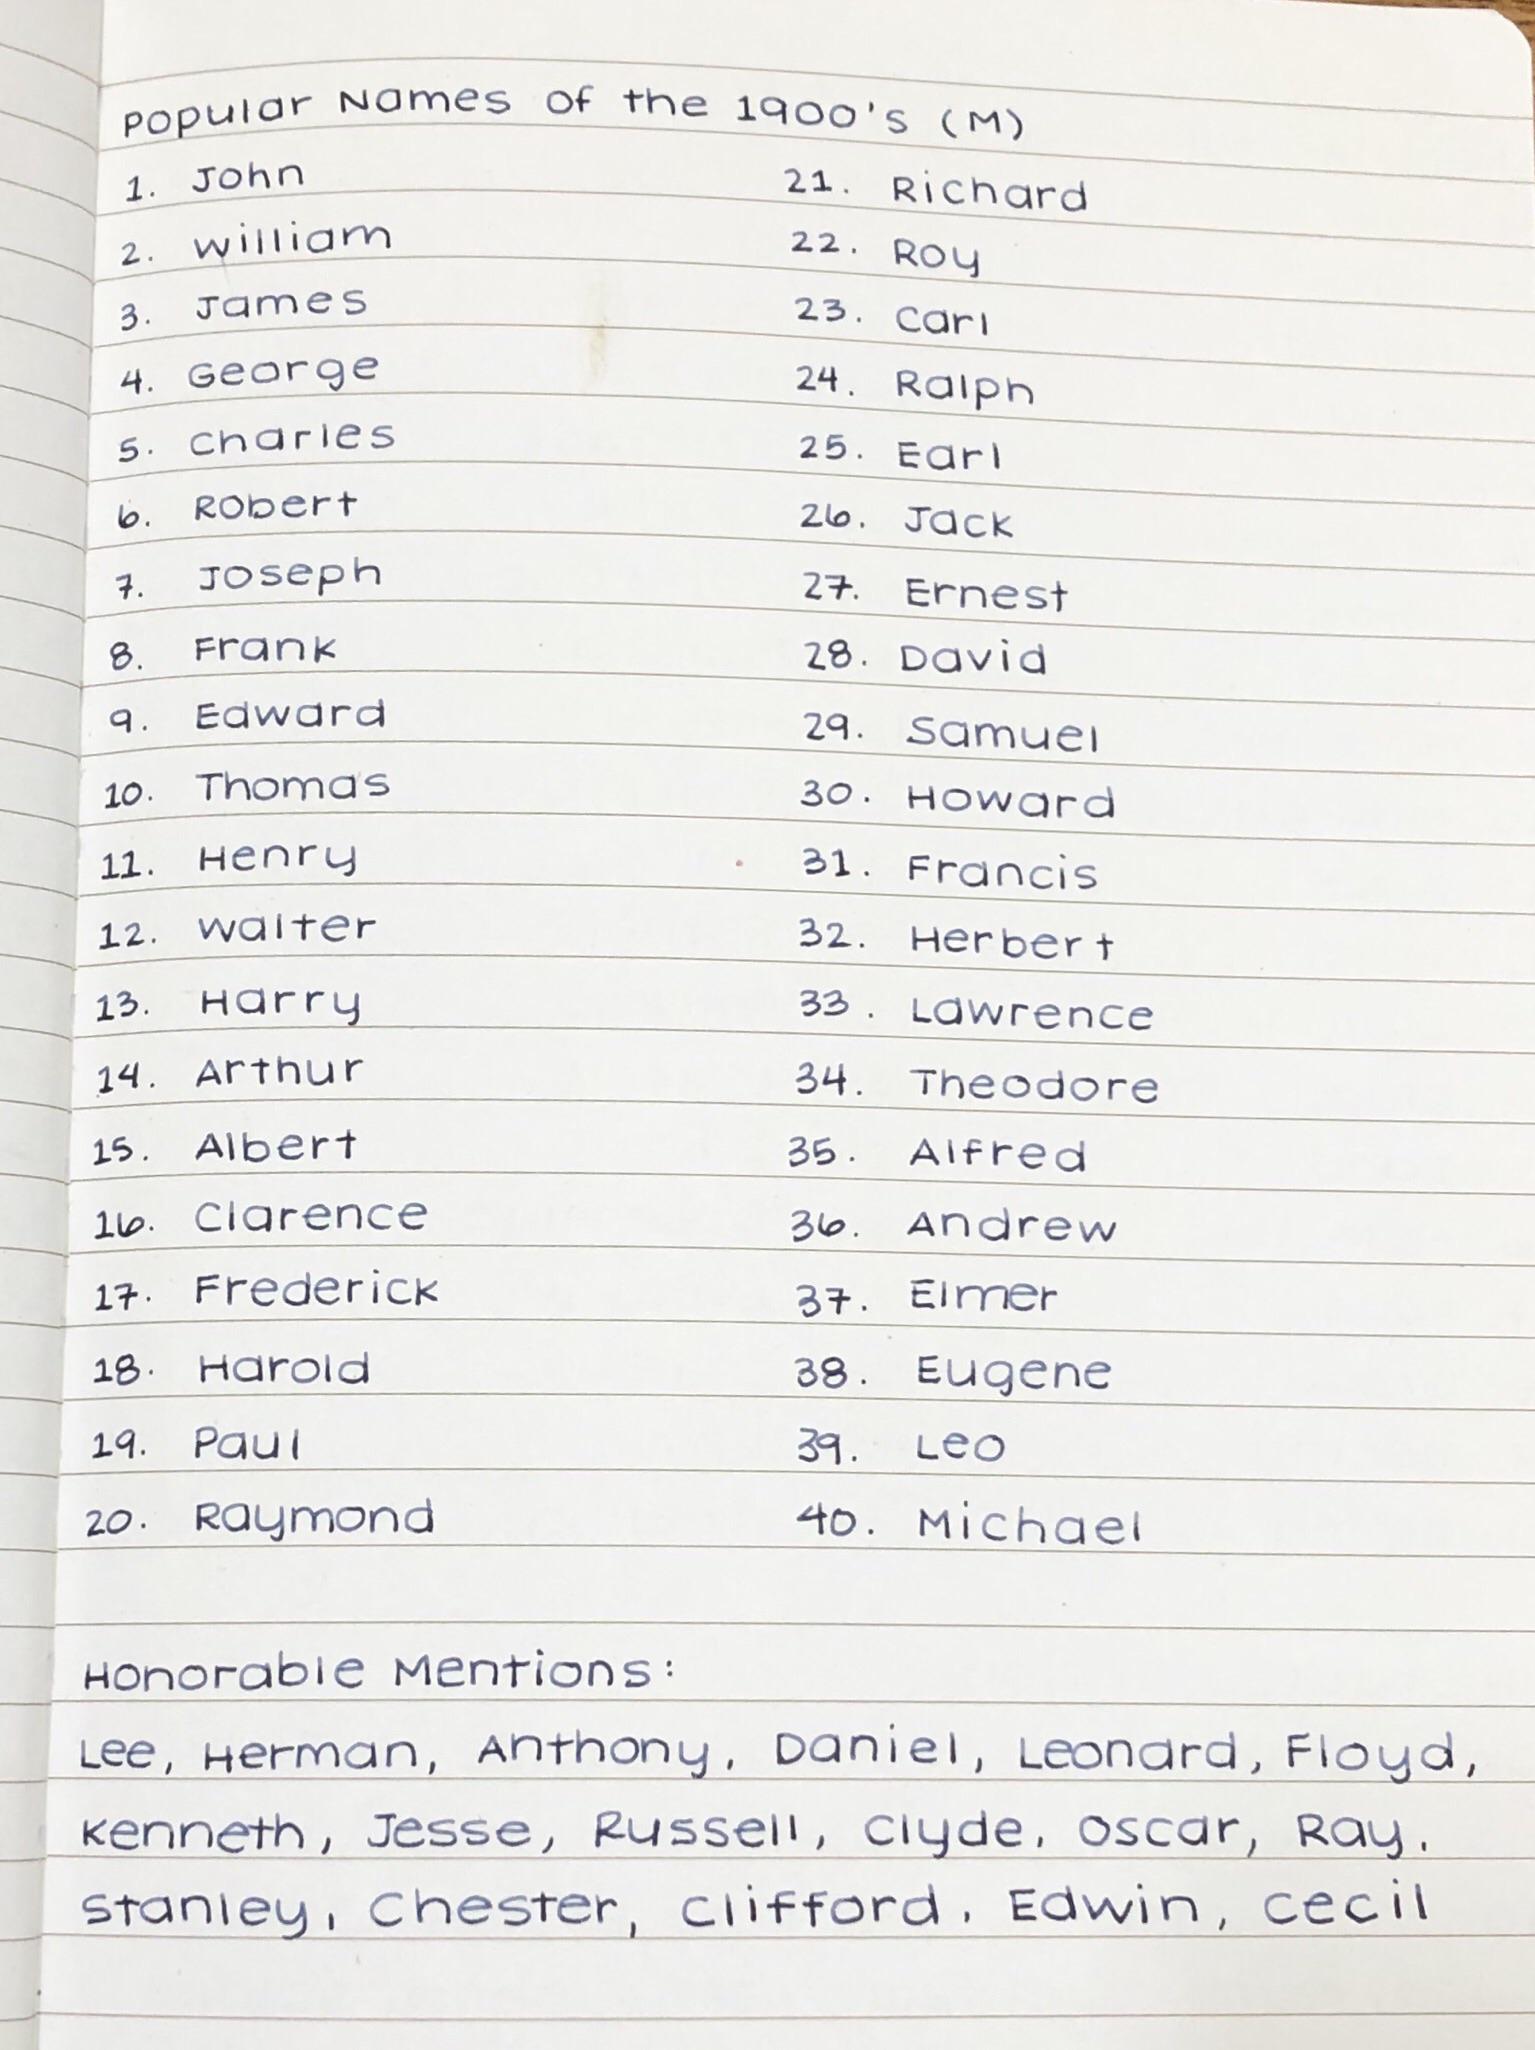 Popular Names of the 1900's (M)
1. John
2. William
3. James
4. George
5. Charles
6. Robert
7. Joseph
8. Frank
9. Edward
10. Thomas
11. Henry
12. Walter
13. Harry
14. Arthur
15. Albert
16. Clarence
17. Frederick
18. Harold
19. Paul
20. Raymond
21. Richard
22. Roy
23. Carl
24. Ralph
25. Earl
26. Jack
27. Ernest
28. David
29. Samuel
30. Howard
31. Francis
32. Herbert
33. Lawrence
34. Theodore
35. Alfred
36. Andrew
37. Elmer
38. Eugene
39. Leo
40. Michael
Honorable Mentions:
Lee, Herman, Anthony, Daniel, Leonard, Floyd,
Kenneth, Jesse, Russell, Clyde, Oscar, Ray,
Stanley, Chester, Clifford, Edwin, Cecil